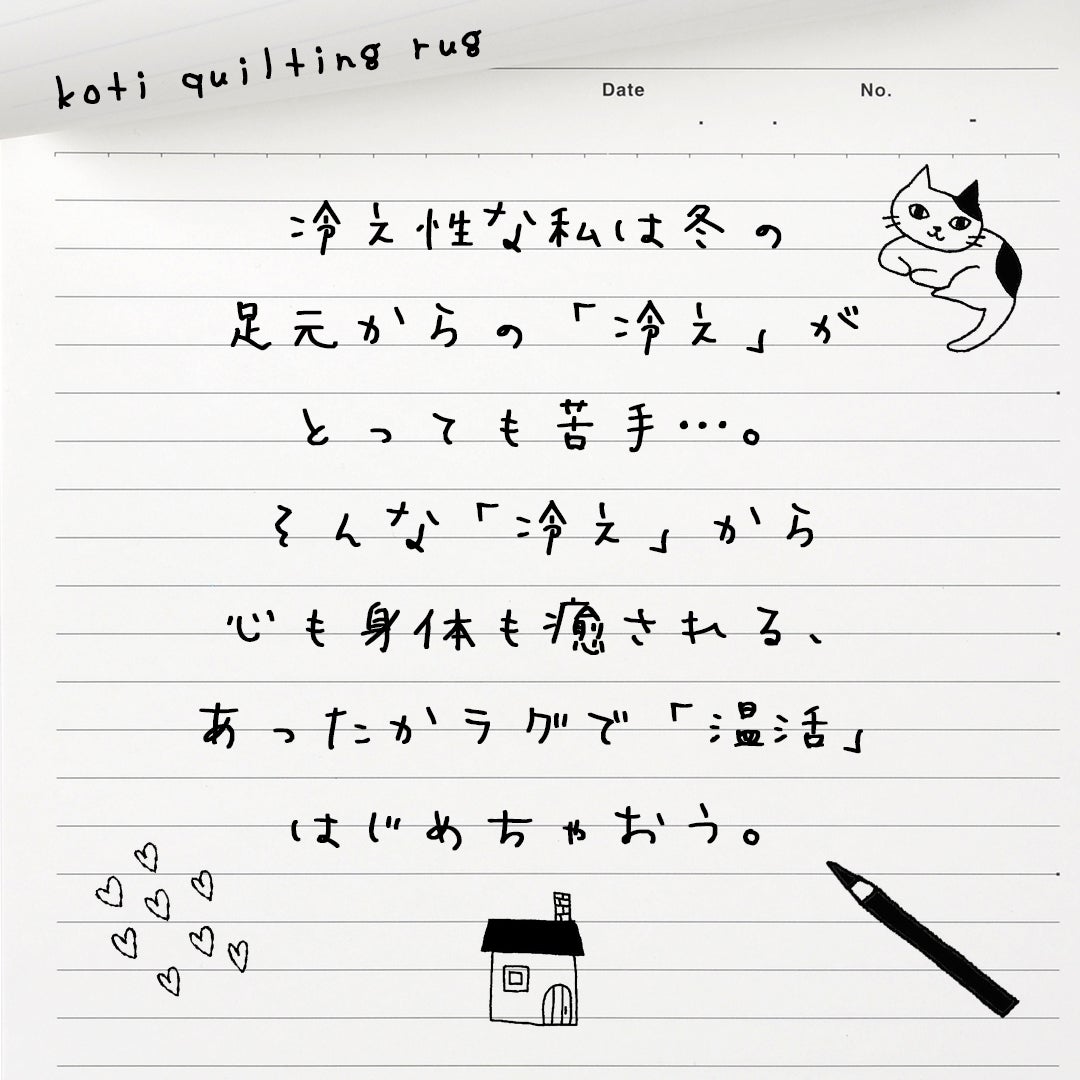 koti quilting rug
Date No.
冷え性な私は冬の
足元からの「冷え」が
とっても苦手…。
そんな「冷え」から
心も身体も癒される、
あったかラグで「温活」
はじめちゃおう。